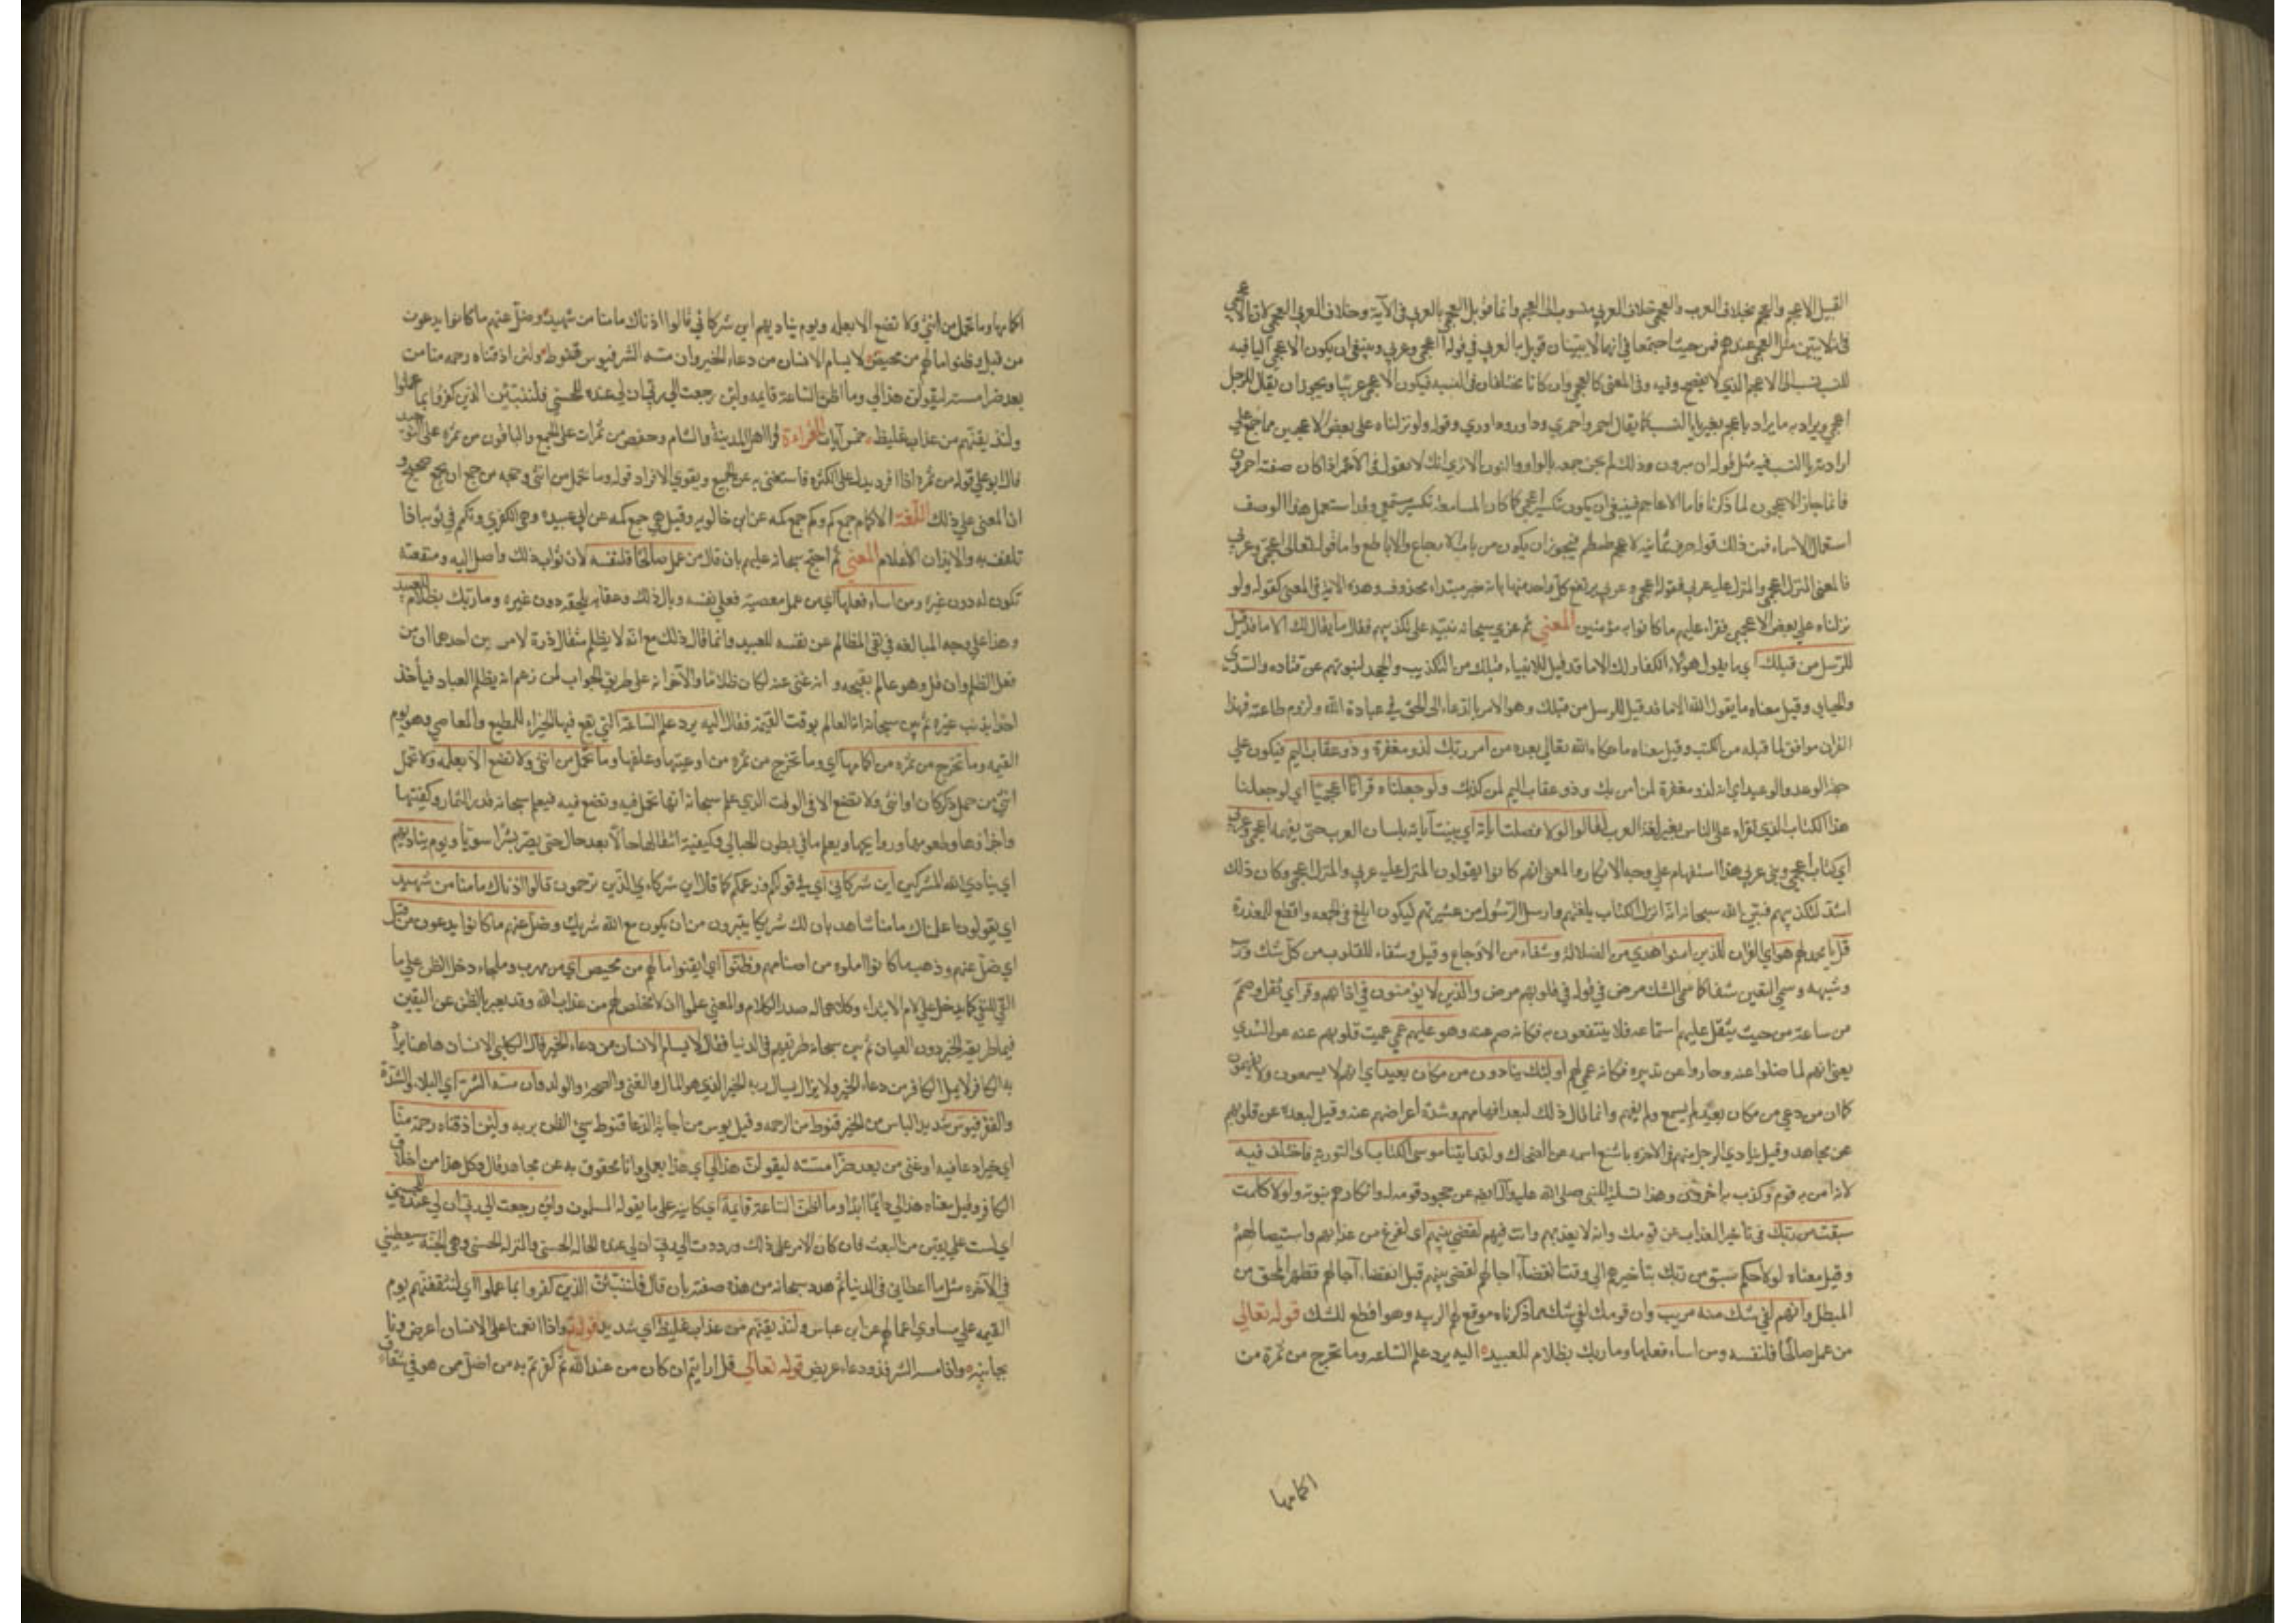 القبيل الاعجم والعجم بخلاف العرب والعجمي خلاف العربي منسوب الى العجم وانما قوبل العجمي بالعربي في الآية وخلاف العربي العجمي لان الاعجمي
في انه لا يبين مثل العجمي عندهم فمن حيث اجتمعا في انهما لا يبينان قوبل به العربي في قوله اعجمي وعربي وينبغي ان يكون الاعجمي اليا فيه
للنسب نسب الى الاعجم الذي لا يفصح وفيه وفي المعنى كالعجمي وان كانا يختلفان في النسبة فيكون الاعجمي عربيا ويجوز ان يقال للرجل
اعجمي ويراد به ما يراد باعجم بغير يا النسب كما يقال احمر واحمري ودوار ودواري وقوله ولو نزلناه على بعض الاعجمين مما جمع على
ارادة يا النسب فيه مثل قولهم النميرون وذلك لم يجز جمعه بالواو والنون الا ترى انك لا تقول في الاحمر اذا كان صفة احمرون
فانما جاز الاعجمون لما ذكرنا فاما الاعاجم فينبغي ان يكون تكسير اعجمي كما كان المسامعة تكسير مسمعي وقد استعمل هذا الوصف
استعمال الاسماء فمن ذلك قوله حزق يمانية لاعجم طمطم فيجوز ان يكون من باب الاجارع والاباطح واما قوله تعالى اعجمي وعربي
فالمعنى المنزل اعجمي والمنزل عليه عربي فقوله اعجمي وعربي يرتفع كل واحد منهما بانه خبر مبتداء محذوف وهذه الآية في المعنى كقوله ولو
نزلناه على بعض الاعجمين فقراه عليهم ما كانوا به مؤمنين المعنى ثم عزى سبحانه نبيه على تكذيبهم فقال ما يقال لك الا ما قد قيل
للرسل من قبلك اي ما يقول هؤلاء الكفار لك الا ما قد قيل للانبياء قبلك من التكذيب والجحد لنبوتهم عن قتاده والسدي
والجبايي وقيل معناه ما يقول الله الا ما قد قيل للرسل من قبلك وهو الامر بالدعاء الى الحق في عبادة الله ولزوم طاعته فهذا
القران موافق لما قبله من الكتب وقيل معناه ما حكاه الله تعالى بعده من امر ربك لذو مغفرة وذو عقاب اليم فيكون على
جهة الوعد والوعيد اي انه لذو مغفرة لمن امن بك وذو عقاب اليم لمن كذبك ولو جعلناه قرآنا اعجميا اي لو جعلنا
هذا الكتاب الذي تقراه على الناس بغير لغة العرب لقالوا لولا فصلت اياته اي بينت آياته بلسان العرب حتى يفهمه اعجمي وعربي
اي كتاب اعجمي ونبي عربي هذا استفهام على وجه الانكار والمعنى انهم كانوا يقولون المنزل عليه عربي والمنزل اعجمي وكان ذلك
اشد لتكذيبهم فبين الله سبحانه انه انزل الكتاب بلغتهم وارسل الرسول من عشيرتهم ليكون ابلغ في الحجه واقطع للمعذرة
قل يا محمد لهم هو اي القران للذين امنوا هدي من الضلالة وشفاء من الاوجاع وقيل وشفاء للقلوب من كل شك وريب
وشبهه وسمى اليقين شفا كما سمى الشك مرض في قوله في قلوبهم مرض والذين لا يؤمنون في اذانهم وقر اي ثقل وصمم
من سماعه من حيث يثقل عليهم استماعه فلا ينتفعون به فكانهم صم عنه وهو عليهم عمى عميت قلوبهم عنه عن السدي
يعني انهم لما ضلوا عنه وحاروا عن تدبره فكانه عمى لهم اوليك ينادون من مكان بعيد اي انهم لا يسمعون ولا يفهمون
كما ان من دعي من مكان بعيد لم يسمع ولم يفهم وانما قال ذلك لبعد افهامهم وشدة اعراضهم عنه وقيل لبعده عن قلوبهم
عن مجاهد وقيل ينادي الرجل منهم في الاخره باشنع اسمه عن الضحاك ولقد اتينا موسى الكتاب اي التورية فاختلف فيه
لانه امن به قوم وكذب به اخرون وهذا تسلية للنبي صلى الله عليه وآله ايضا عن جحود قومه له وانكارهم نبوته ولولا كلمت
سبقت من ربك في تاخير العذاب عن قومك وانه لا يعذبهم وانت فيهم لقضي بينهم اي لفرغ من عذابهم واستيصالهم
وقيل معناه لولا حكم سبق من ربك بتاخيرهم الى وقت انقضاء اجالهم لقضي بينهم قبل انقضاء آجالهم فظهر المحق من
المبطل وانهم لفي شك منه مريب وان قومك لفي شك مما ذكرناه موقع لهم الريبه وهو افظع للشك قوله تعالى
من عمل صالحا فلنفسه ومن اساء فعليها وما ربك بظلام للعبيد اليه يرد علم الساعه وما تخرج من ثمرة من
اكمامها
اكمامها وما تحمل من انثى ولا تضع الا بعلمه ويوم يناديهم اين شركايي قالوا اذناك ما منا من شهيد وضل عنهم ما كانوا يدعون
من قبل وظنوا ما لهم من محيص لا يسام الانسان من دعاء الخير وان مسه الشر فيوس قنوط ولئن اذقناه رحمه منا من
بعد ضرا مسته ليقولن هذا لي وما اظن الساعة قايمه ولئن رجعت الى ربي ان لي عنده للحسنى فلننبئن الذين كفروا بما عملوا
ولنذيقنهم من عذاب غليظ خمس آيات القراءة قرا اهل المدينة والشام وحفص من ثمرات على الجمع والباقون من ثمره على التوحيد
قال ابو علي قوله من ثمره اذا افرد يدل على الكثره فاستغنى به عن الجمع ويقوي الافراد قوله وما تحمل من انثى وحجه من جمع ان الجمع صحيح و
ان المعنى على ذلك اللغة الاكمام جمع كم وكم جمع كمه عن ابن خالويه وقيل هي جمع كمه عن ابي عبيده وهي الكفري وتكمم في ثوبه اذا
تلفف به والايذان الاعلام المعنى ثم احتج سبحانه عليهم بان قال من عمل صالحا فلنفسه لان ثواب ذلك واصل اليه ومنفعته
تكون له دون غيره ومن اساء فعليها اي من عمل معصية فعلى نفسه وبال ذلك وعقابه يلحقه دون غيره وما ربك بظلام للعبيد
وهذا على وجه المبالغه في نفي المظالم عن نفسه للعبيد وانما قال ذلك مع انه لا يظلم مثقال ذرة لامرين احدهما ان من
فعل الظلم وان قل وهو عالم بقبحه و انه غني عنه لكان ظلاما والآخر انه على طريق الجواب لمن زعم انه يظلم العباد فيأخذ
احدا بذنب غيره ثم بين سبحانه انه العالم بوقت القيمة فقال اليه يرد علم الساعة التي يقع فيها الجزاء للمطيع والعاصي وهو يوم
القيمه وما تخرج من ثمره من اكمامها اي وما تخرج من ثمره من اوعيتها وغلفها وما تحمل من انثى ولا تضع الا بعلمه ولا تحمل
انثى من حمل ذكر كان او انثى ولا تضع الا في الوقت الذي علم سبحانه انها تحمل فيه وتضع فيه فيعلم سبحانه قدر الثمار وكيفيتها
واجزاءها وطعومها وروايحها ويعلم ما في بطون الحبالى وكيفية انتقالها حالا بعد حال حتى يصير بشرا سويا ويوم يناديهم
اي ينادي الله المشركين اين شركايي اي في قولكم وزعمكم كما قال اين شركاءي الذين تزعمون قالوا اذناك ما منا من شهيد
اي يقولون اعلمناك ما منا شاهد بان لك شريكا يتبرون من ان يكون مع الله شريك وضل عنهم ما كانوا يدعون من قبل
اي ضل عنهم وذهب ما كانوا املوه من اصنامهم وظنوا اي ايقنوا ما لهم من محيص اي من مهرب وملجاء دخل الظن على ما
التي للنفي كما يدخل على لام الابتداء وكلاهما له صدر الكلام والمعنى علموا ان لا مخلص لهم من عذاب الله وقد يعبر بالظن عن اليقين
فيما طريقه الخبر دون العيان ثم بين سبحانه طريقهم في الدنيا فقال لا يسام الانسان من دعاء الخير قال الكلبي الانسان هاهنا يراد
به الكافر لا يمل الكافر من دعاء الخير ولا يزال يسال ربه الخير الذي هو المال والغنى والصحه والولد وان مسه الشر اي البلاء والشدة
والفقر فيوس شديد الياس من الخير قنوط من الرحمه وقيل يوس من اجابة الدعا قنوط سيئ الظن بربه ولئن اذقناه رحمة منا
اي خيرا وعافيه وغنى من بعد ضرا مسته ليقولن هذا لي اي هذا بعملي وانا محقوق به عن مجاهد قال وكل هذا من اخلاق
الكافر وقيل معناه هذا لي دايما ابدا وما اظن الساعة قايمة اي كاينه على ما يقوله المسلمون ولئن رجعت الى ربي ان لي عنده للحسنى
اي لست على يقين من البعث فان كان الامر على ذلك ورددت الى ربي ان لي عنده الحاله الحسنى والمنزله الحسنى وهي الجنه سيعطيني
في الآخره مثل ما اعطاني في الدنيا ثم هدد سبحانه من هذه صفته بان قال فلننبئن الذين كفروا بما عملوا اي لنقفنهم يوم
القيمه على مساوي اعمالهم عن ابن عباس ولنذيقنهم من عذاب غليظ اي شديد قوله واذا انعمنا على الانسان اعرض ونا
بجانبه واذا مسه الشر فذو دعاء عريض قوله تعالى قل ارايتم ان كان من عند الله ثم كفرتم به من اضل ممن هو في شقاق